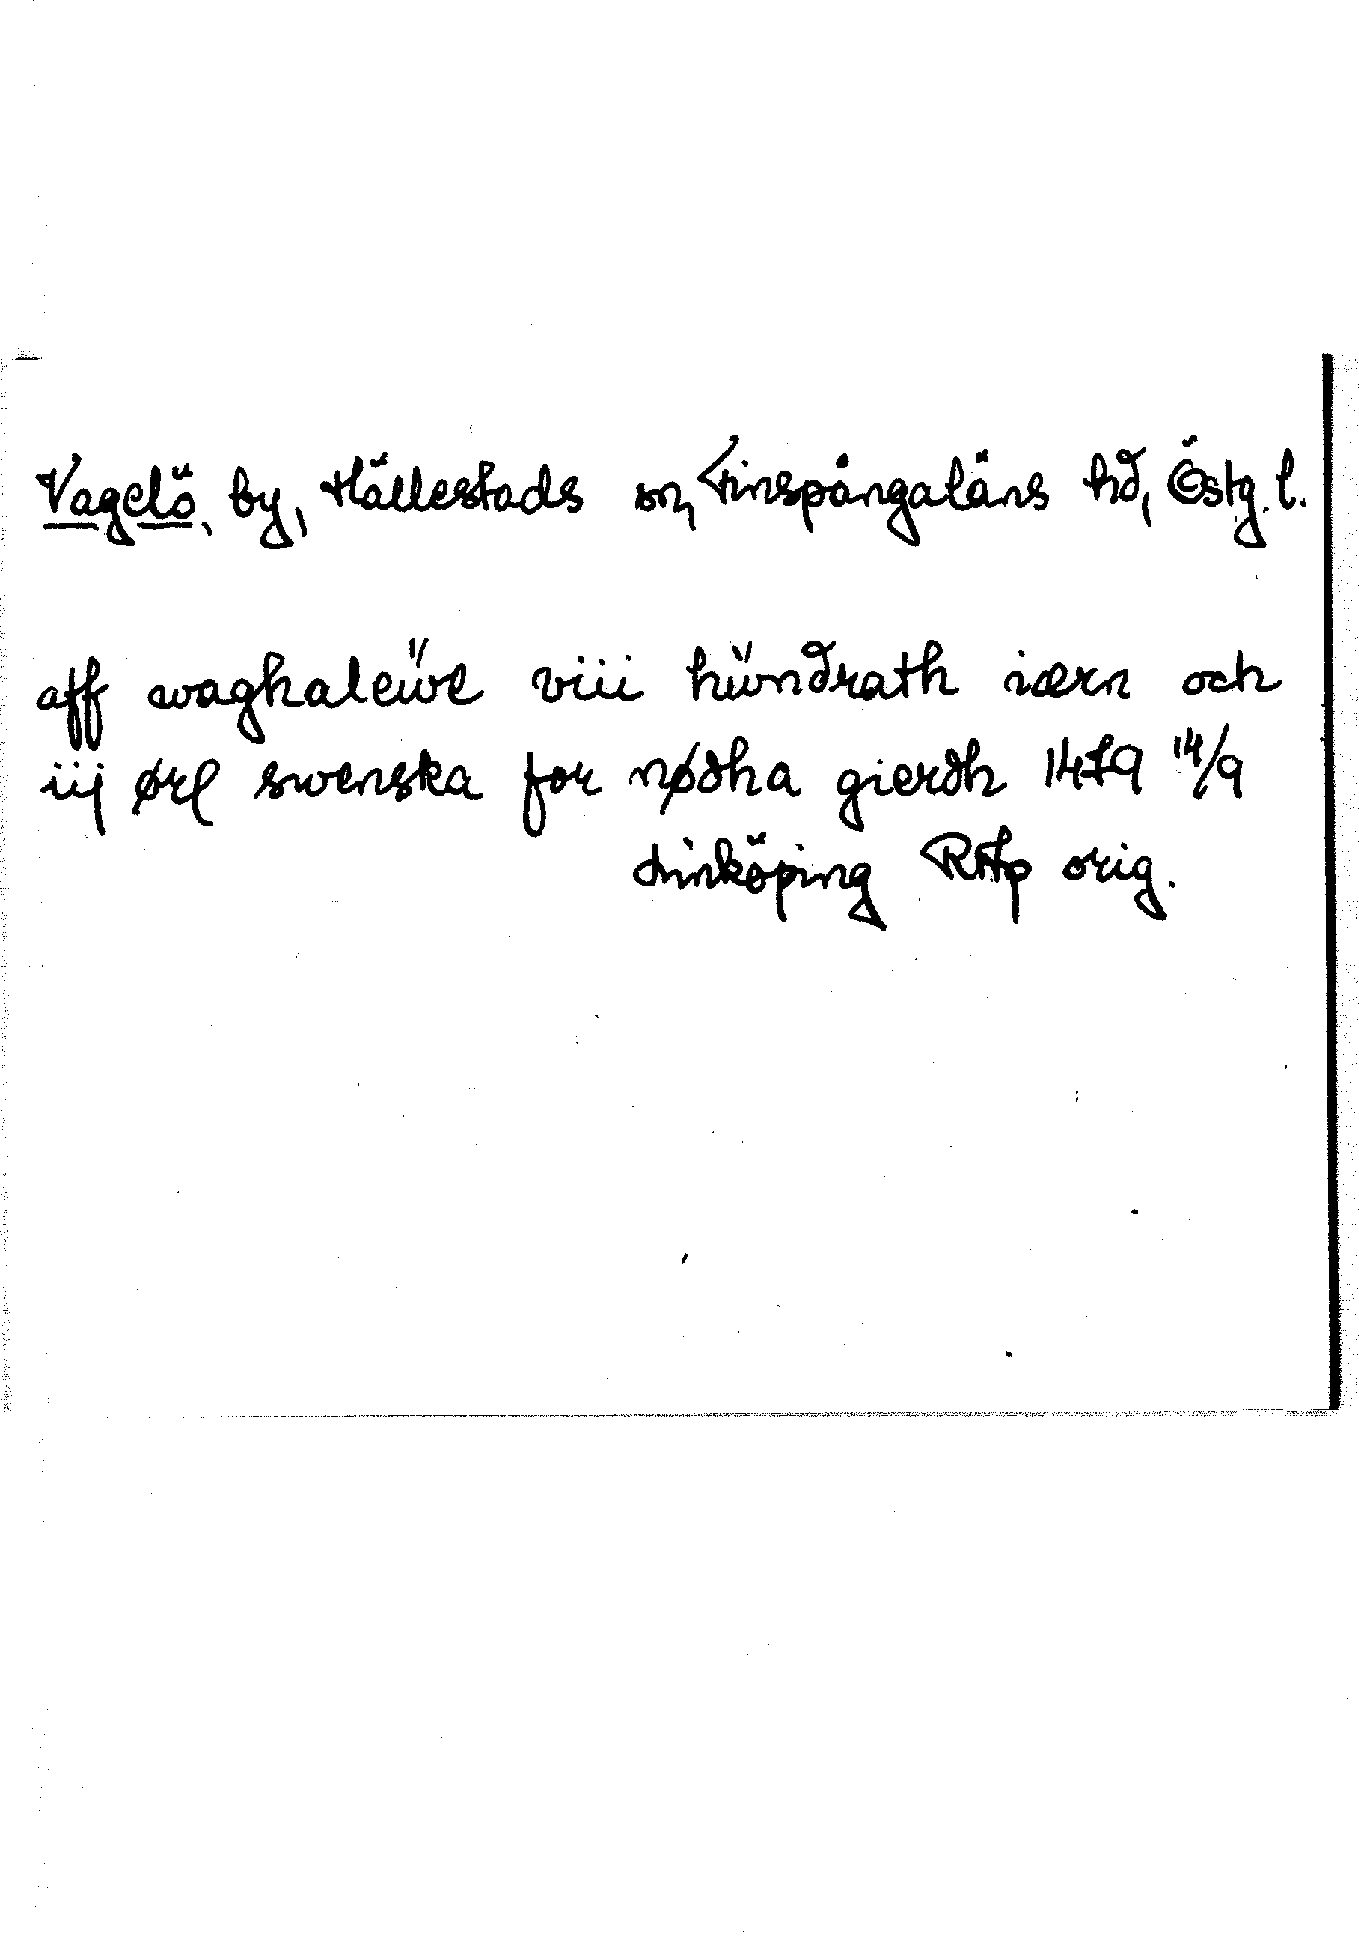 Vagelö, by, Hällestads sn, Finspångaläns hd, Östg. l.
aff waghaleüwe viii hündrath iærn och
iij ørl swenska for nødha gierdh 1479 14/9
Linköping RAp orig.